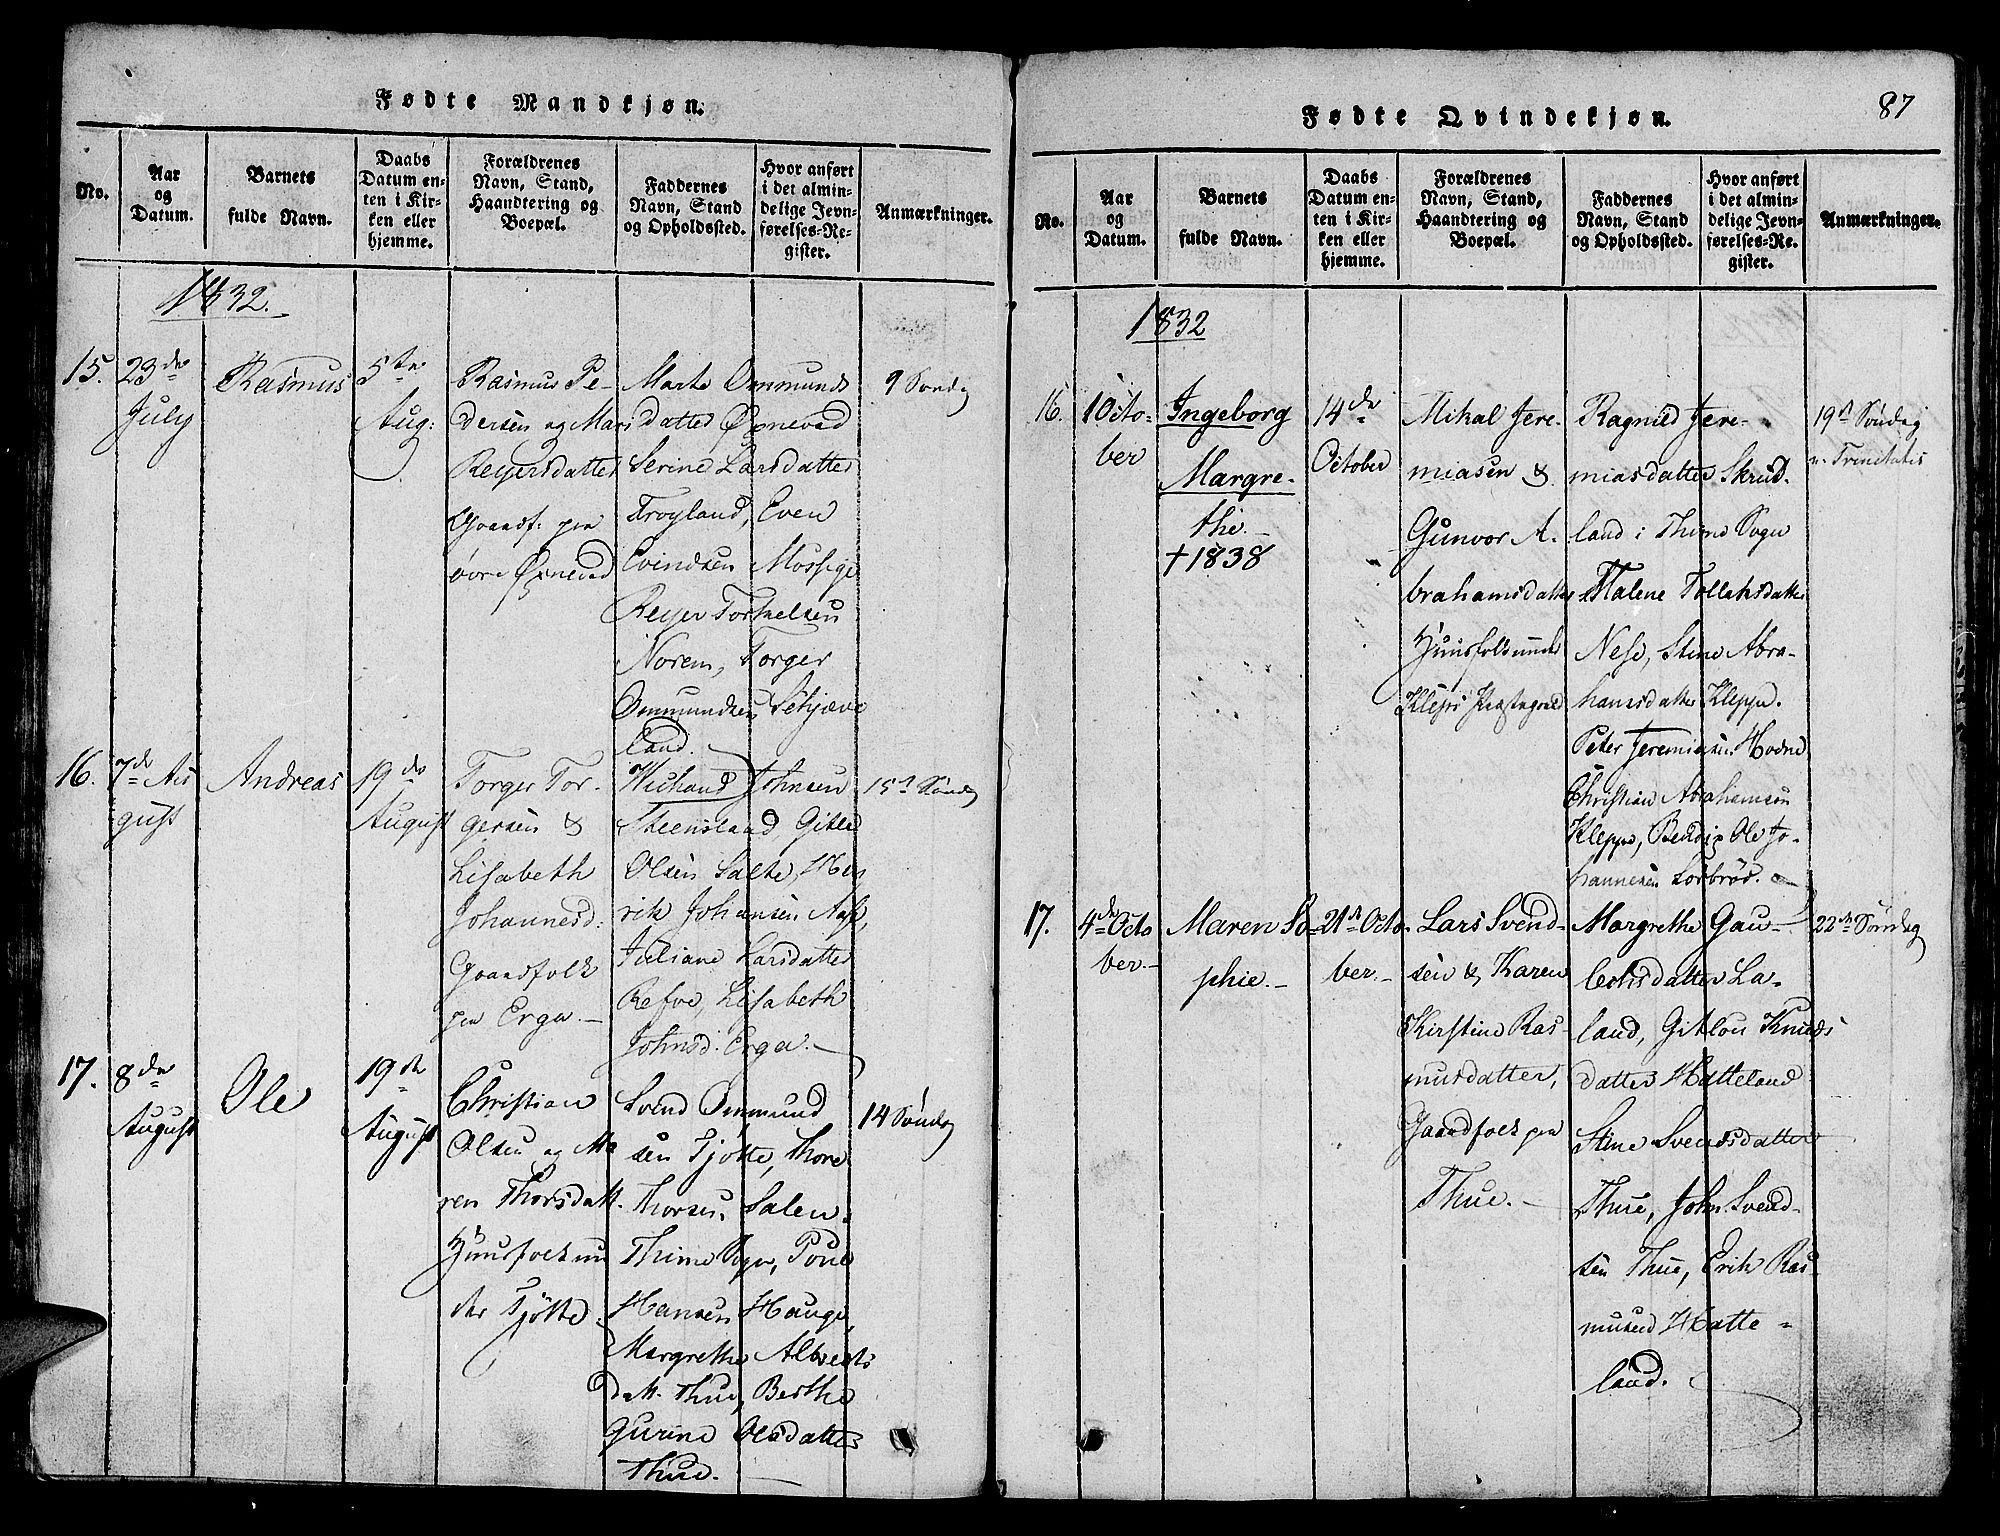 Fødte Mandkjøn.
No.
Aar
og
Datum.
Barnets
fulde Navn.
Daabs
Datum en-
ten i Kir-
ken eller
hjemme.
Forældrenes
Navn, Stand,
Haandtering og
Boepæl.
Faddernes
Navn, Stand
og Opholdssted.
Hvor anført
i det almin-
delige Jevn-
førelses-Re-
gister.
Anmærkninger.
1832.
15.
23de
July
Rasmus
5te
Aug:
Rasmus Pe-
dersen og Mari
Reyersdatter
Gaardf. paa
øvre Øxnevad
Marte Ommunds
datter Øxnevad
Serine Larsdatter
Frøyland, Even
Evindsen Mossige
Reyer Torkelsen
Norem, Torger
Ommundsen Schjæve
land.
9 Søndag
16.
7de Au
gust
Andreas
19de
August
Torger Tor-
gersen &
Lisabeth
Johannesd:
Gaardfolk
paa Erga.-
Wichand Johnsen
Steensland, Gitle
Olsen Salte, Hen
rik Johansen Aase,
Juliane Larsdatter
Refve, Lisabeth
Johnsd: Erga.-
15d Søndag
17.
8de
August
Ole
19de
August
Christian
Olsen og Ma
ren Thorsdatt.
Huusfolk un
der Tjøtte.
Svend Ommund
sen Tjøtte, Thore
Thorsen Salen
Thime Sogn, Poul
Hansen Hauge,
Margrethe Alberts
datt. Thue, Berthe
Gurine Olsdatter
Thue.
14 Søndag
87
Fødte Qvindekjøn.
No.
Aar
og
Datum.
Barnets
fulde Navn.
Daabs
Datum en-
ten i Kir-
ken eller
hjemme.
Forældrenes
Navn, Stand,
Haandtering og
Boepæl.
Faddernes
Navn, Stand
og Opholdssted.
Hvor anført
i det almin-
delige Jevn-
førelses-Re-
gister.
Anmærkninger.
1832
16.
1 Octo-
ber
Ingeborg
Margre-
the.
+ 1838
14de
October
Mikal Jere-
miasen &
Gunvor A-
brahamsdatter
Huusfolk under
Klepps Præstegaard
Ragnild Jere-
miasdatter Skrud-
land i Thime Sogn
Malene Tollaksdatter
Nese, Stine Abra-
hamsdatter Kleppe.
Peter Jeremiasen Hodne
Christian Abrahamsen
Kleppe, Bendix Ole Jo-
hannesen Sørbrød.
19d Søndag
n. Trinitatis
17.
4de Octo
ber.-
Maren So-
phie.-
21de Octo-
ber.-
Lars Svend-
sen & Karen
Kirstine Ras-
musdatter,
Gaardfolk paa
Thue.-
Margrethe Gau-
lechsdatter La-
land, Gitlou Knuds
datter Hatteland
Stine Svendsdatter
Thue, John Svend-
sen Thue, Erik Ras-
mussen Hatte-
land.
22de Søndag